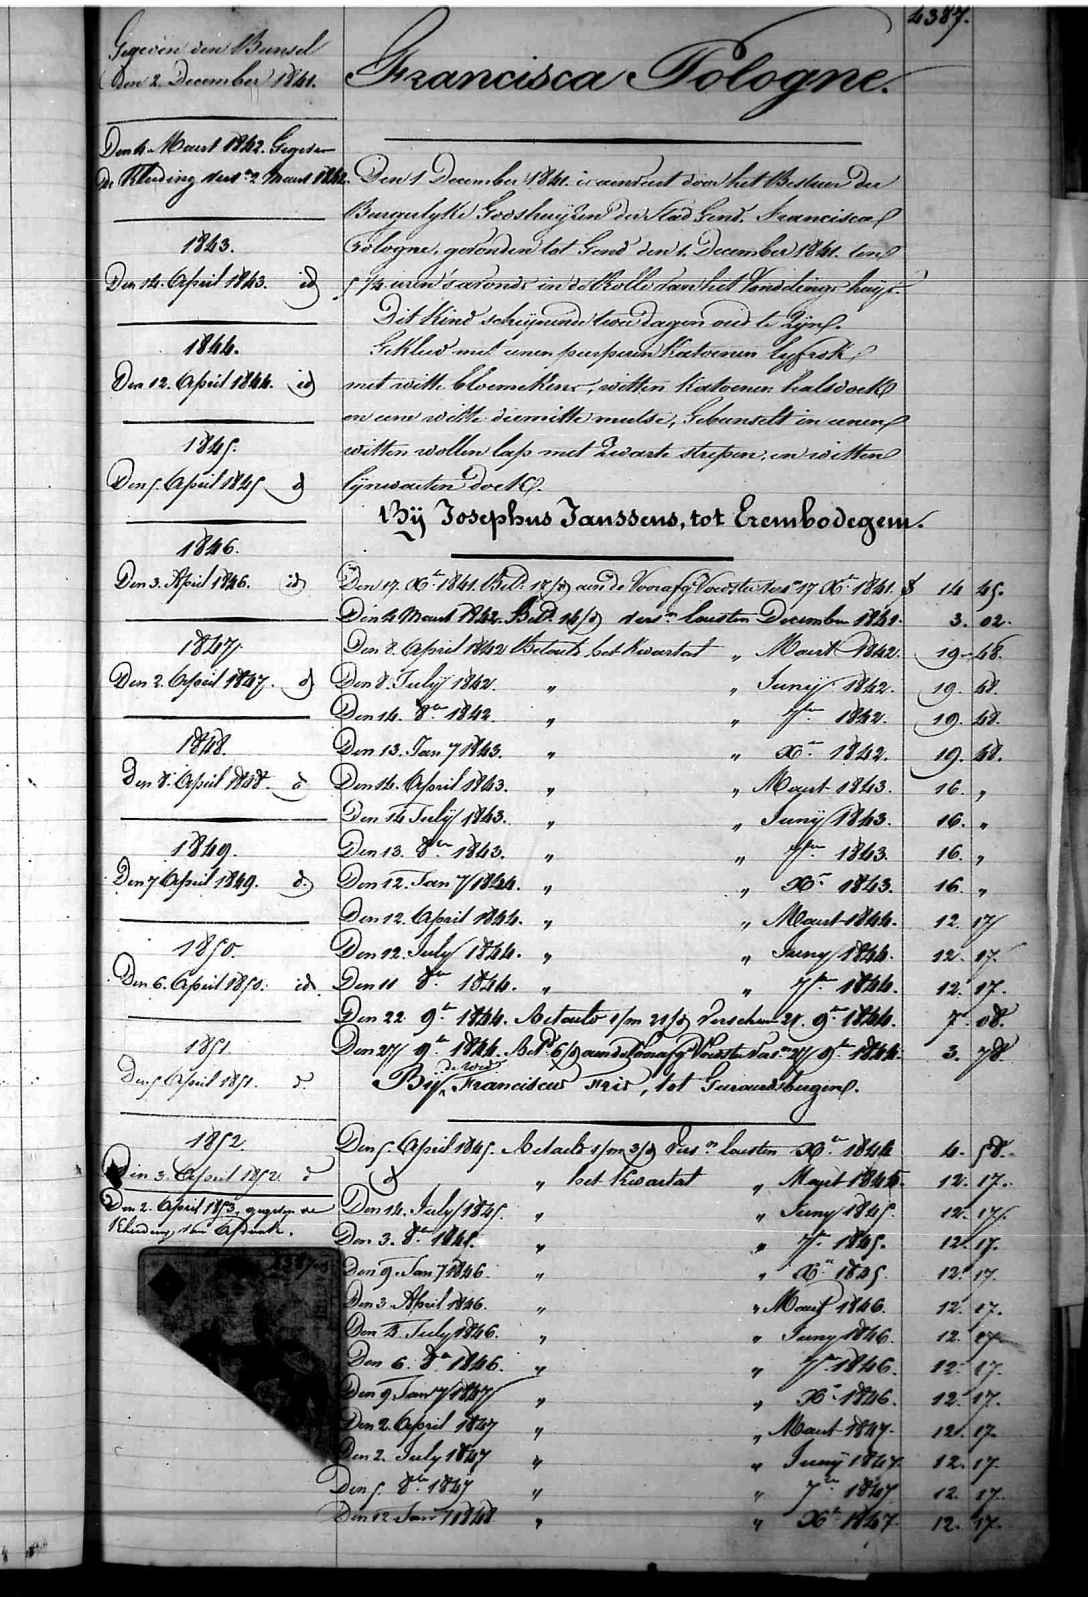 4387.
Gegeven den Bunsel
Den 2. December 1841.
Den 4. Maart 1842. Gegeven
de Kleeding vers.en 2 Maart 1842.
1843.
Den 14. April 1843. id
1844.
Den 12. April 1844. id
1845.
Den 5. April 1845 d
1846.
Den 3. April 1846. id
1847
Den 2. April 1847. d
1848.
Den 8. April 1848. d
1849.
Den 7 April 1849. d.
1850.
Den 6. April 1850. id.
1851
Den 5 April 1851. d.
1852.
Den 3. April 1852 d
Den 2. April 1853, gegeven de
Kleeding van
Francisca Pologne.
Den 1 December 1841. is aenveert door het Bestuer der
Burgerlyke Godshuyzen der Stad Gend. Francisca
Pologne, gevonden tot Gend den 1. December 1841. ten
5 1/4 uren s'avonds in de Rolle van het Vondelings huys.
Dit Kind schynende twee dagen oud te zyn.
Gekleed met eenen purperen Katoenen lyfrok
met witte bloemekens, witten Katoenen halsdoek
en eene witte diemitte mutse, Gebunselt in eenen
witten wollen lap met zwarte strepen, en witten
lynwaeten doek.
By Josephus Janssens, tot Erembodegem.
Den 17. Xr. 1841. Bet.d 17/d aen de Voorafg. Voedster vers.n 17 Xr. 1841. f 14 45.
Den 4 Maart 1842. Bet.d 14/d vers.n lausten December 1841. 3. 02.
Den 8. April 1842 Betaelt het Kwartat „ Maart 1842. 19 48.
Den 8. July 1842. „ „ Juny 1842. 19. 48.
Den 14. 8.er 1842. „ „ 7.er 1842. 19. 48.
Den 13. Jan.y 1843. „ „ Xr. 1842. 19. 48.
Den 14. April 1843. „ „ Maart 1843. 16. „
Den 14 July 1843. „ „ Juny 1843. 16. „
Den 13. 8.er 1843. „ „ 7.er 1843 16. „
Den 12. Jan.y 1844. „ „ Xr. 1843. 16 „
Den 12. April 1844. „ „ Maart 1844. 12. 17
Den 12. July 1844. „ „ Juny 1844. 12. 17.
Den 11 8.er 1844. „ „ 7.er 1844. 12. 17.
Den 22 9.er 1844. Betaelt 1/m 21/d verschenen 21. 9.er 1844. 7. 08.
Den 27 9.er 1844. Bet.d 6/d aen de Voorafg. Voedster vers.n 27 9.er 1844. 3. 78
By de wed. Franciscus Fris, tot Geeraerdsbergen.
Den 5. April 1845. Betaelt 1/m 3/d vers.n lausten Xr. 1844 4. 58.
d „ het Kwartat „ Maart 1845. 12. 17.
Den 14. July 1845. „ „ Juny 1845. 12. 17.
Den 3. 8.er 1845. „ „ 7.er 1845. 12. 17.
Den 9 Jan.y 1846. „ „ Xr. 1845. 12. 17.
Den 3 April 1846. „ „ Maart 1846. 12. 17.
Den July 1846. „ „ Juny 1846. 12. 17
Den 6. 8.er 1846. „ „ 7.er 1846. 12. 17.
Den 9 Jan.y 1847 „ „ Xr. 1846. 12. 17.
Den 2. April 1847 „ „ Maart 1847. 12. 17.
Den 2. July 1847 „ „ Juny 1847. 12. 17.
Den 5. 8.er 1847 „ „ 7.er 1847 12. 17.
Den 12 Jan.y 1848 „ „ Xr. 1847. 12. 17.